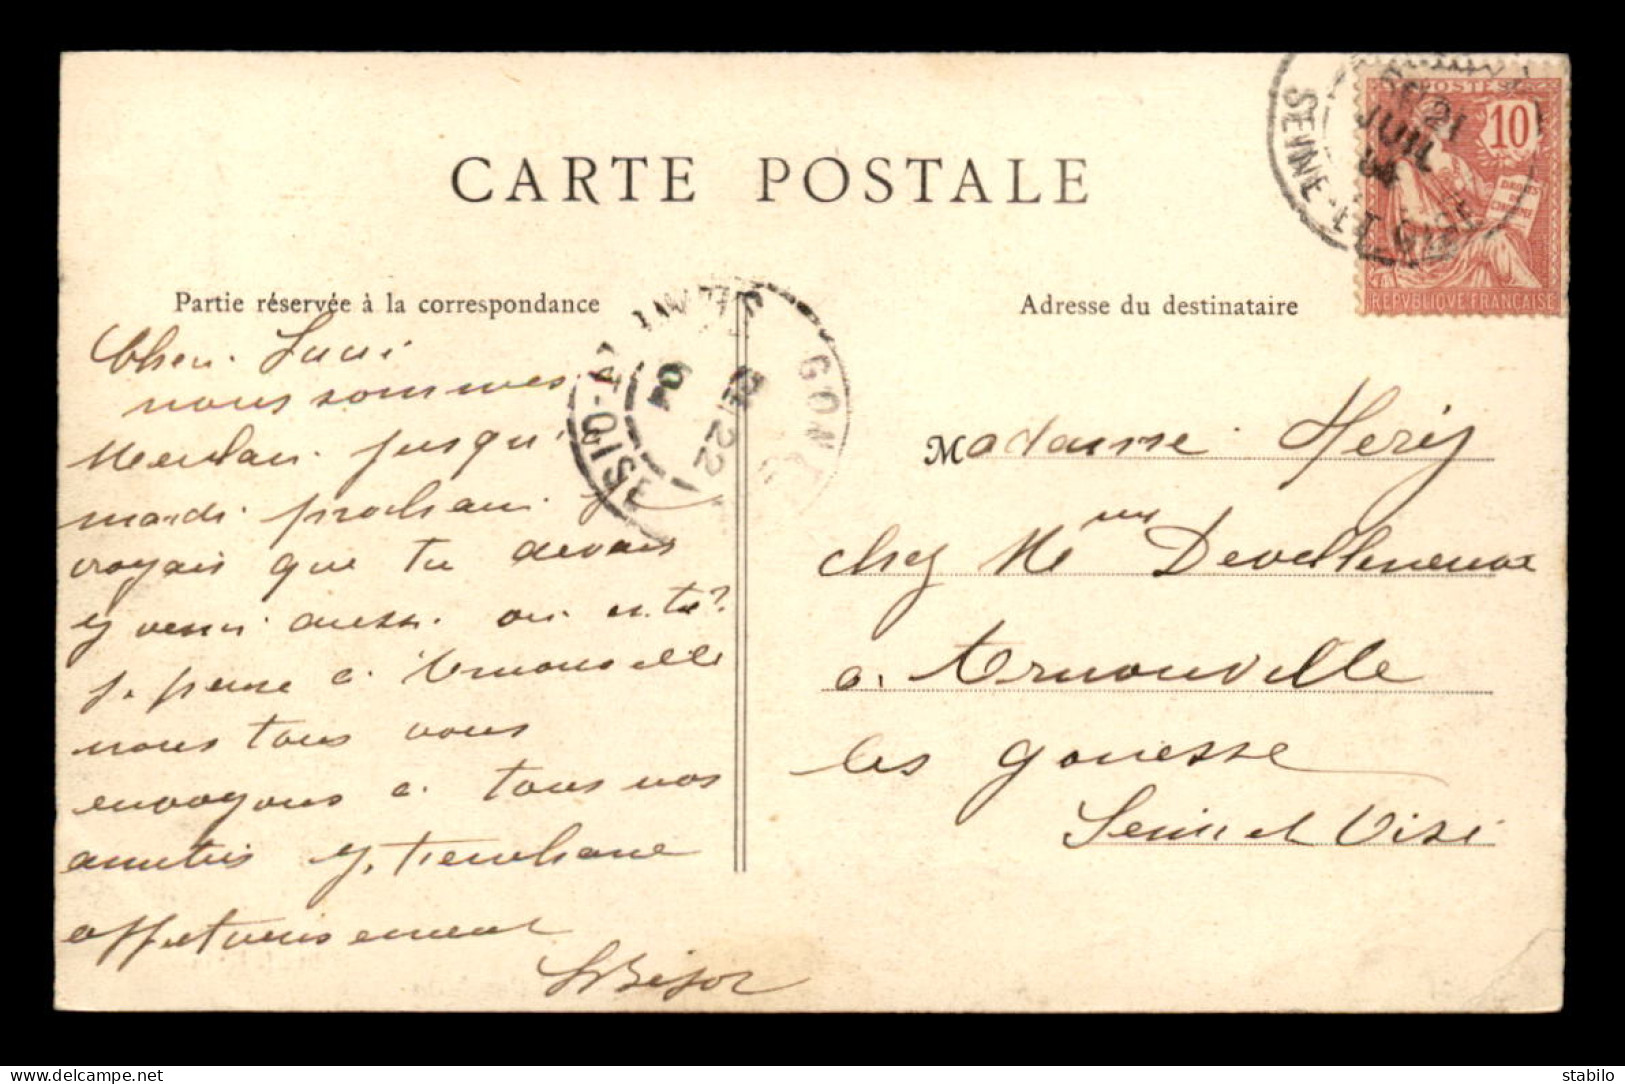 CARTE POSTALE
Partie réservée à la correspondance
Adresse du destinataire
POSTES
10
DROITS DE L'HOMME
REPVBLIQUE FRANÇAISE
21
JUIL
04
SEINE-ET-OISE
GONESSE
22
04
SEINE-ET-OISE
nous sommes
Meulan jusqu'
mardi prochain je
croyais que tu devais
y venir aussi. où es-tu?
je pense à Arnouville
nous tous vous
envoyons à tous nos
amitiés
affectueusement
Madame
chez Mme
à Arnouville
les gonesse
Seine et Oise
www.delcampe.net
stabilo